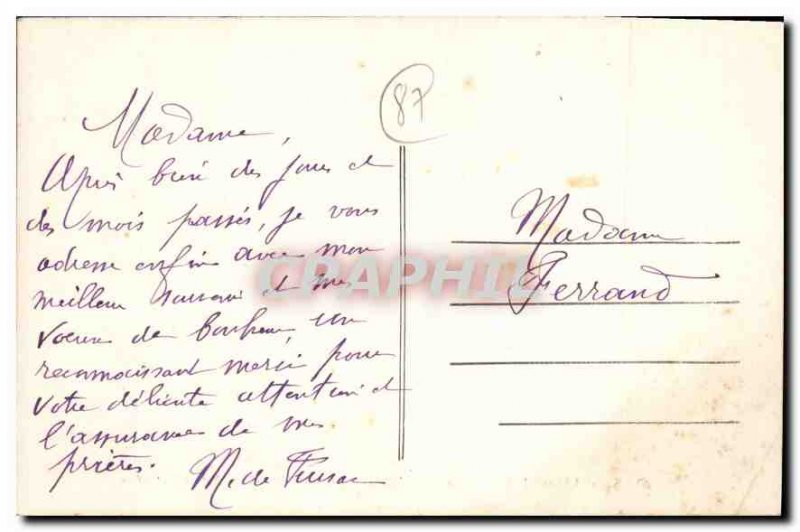 87
Madame,
Après bien des jours et
des mois passés, je vous
adresse enfin avec mon
meilleur souvenir et mes
voeux de bonheur, un
reconnaissant merci pour
votre délicate attention et
l'assurance de mes
prières.
M. de
Madame
Ferrand
CRAPHIL